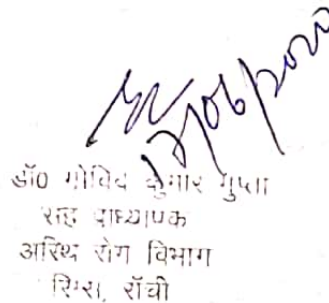 12/06/2020
डॉ0 गोविंद कुमार गुप्ता
सह प्राध्यापक
अस्थि रोग विभाग
रिम्स, राँची